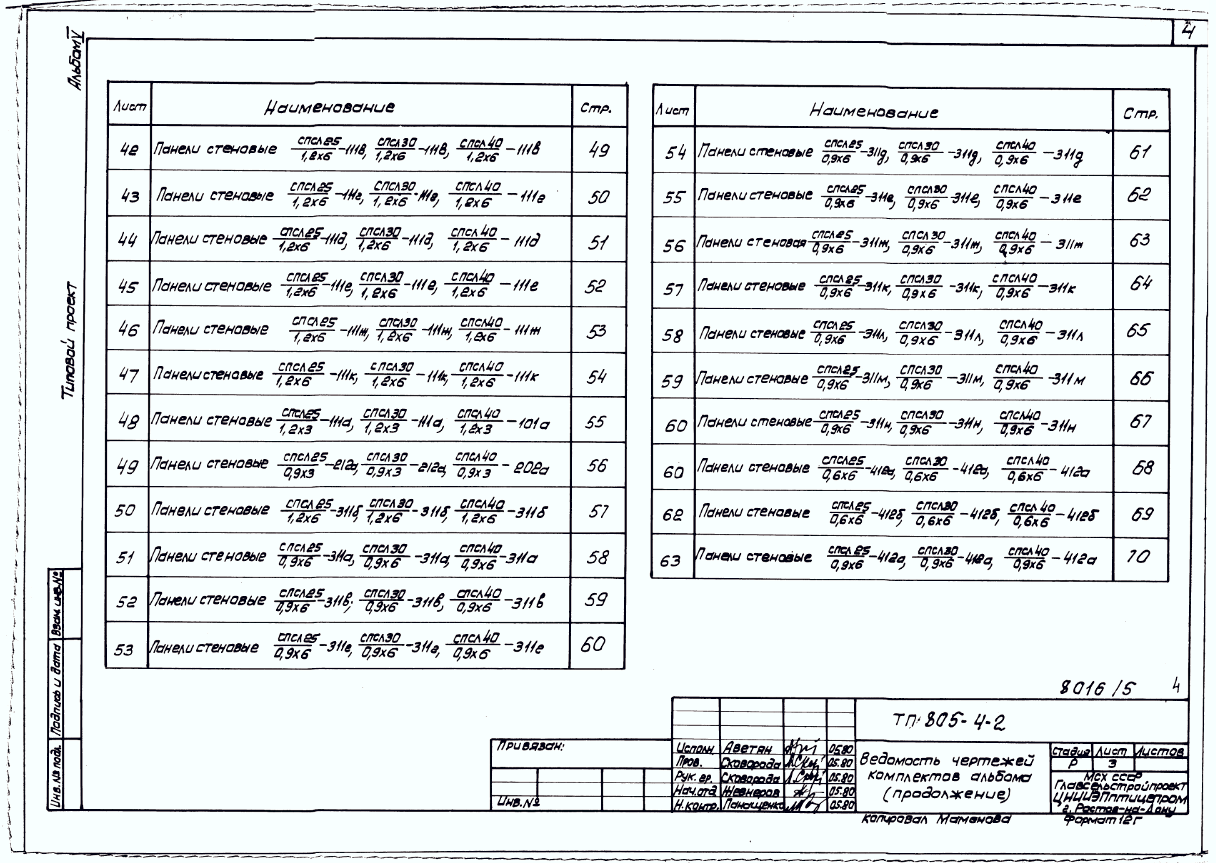 4
Альбом V
Типовой проект
Лист Наименование Стр.
42 Панели стеновые спсл25/1,2х6-111в, спсл30/1,2х6-111в, спсл40/1,2х6-111в 49
43 Панели стеновые спсл25/1,2х6-111г, спсл30/1,2х6-111г, спсл40/1,2х6-111г 50
44 Панели стеновые спсл25/1,2х6-111д, спсл30/1,2х6-111д, спсл40/1,2х6-111д 51
45 Панели стеновые спсл25/1,2х6-111е, спсл30/1,2х6-111е, спсл40/1,2х6-111е 52
46 Панели стеновые спсл25/1,2х6-111ж, спсл30/1,2х6-111ж, спсл40/1,2х6-111ж 53
47 Панели стеновые спсл25/1,2х6-111к, спсл30/1,2х6-111к, спсл40/1,2х6-111к 54
48 Панели стеновые спсл25/1,2х3-111а, спсл30/1,2х3-111а, спсл40/1,2х3-101а 55
49 Панели стеновые спсл25/0,9х3-212а, спсл30/0,9х3-212а, спсл40/0,9х3-202а 56
50 Панели стеновые спсл25/1,2х6-311б, спсл30/1,2х6-311б, спсл40/1,2х6-311б 57
51 Панели стеновые спсл25/0,9х6-311а, спсл30/0,9х6-311а, спсл40/0,9х6-311а 58
52 Панели стеновые спсл25/0,9х6-311в, спсл30/0,9х6-311в, спсл40/0,9х6-311в 59
53 Панели стеновые спсл25/0,9х6-311г, спсл30/0,9х6-311г, спсл40/0,9х6-311г 60
Лист Наименование Стр.
54 Панели стеновые спсл25/0,9х6-311д, спсл30/0,9х6-311д, спсл40/0,9х6-311д 61
55 Панели стеновые спсл25/0,9х6-311е, спсл30/0,9х6-311е, спсл40/0,9х6-311е 62
56 Панели стеновая спсл25/0,9х6-311ж, спсл30/0,9х6-311ж, спсл40/0,9х6-311ж 63
57 Панели стеновые спсл25/0,9х6-311к, спсл30/0,9х6-311к, спсл40/0,9х6-311к 64
58 Панели стеновые спсл25/0,9х6-311л, спсл30/0,9х6-311л, спсл40/0,9х6-311л 65
59 Панели стеновые спсл25/0,9х6-311м, спсл30/0,9х6-311м, спсл40/0,9х6-311м 66
60 Панели стеновые спсл25/0,9х6-311н, спсл30/0,9х6-311н, спсл40/0,9х6-311н 67
60 Панели стеновые спсл25/0,6х6-412а, спсл30/0,6х6-412а, спсл40/0,6х6-412а 68
62 Панели стеновые спсл25/0,6х6-412б, спсл30/0,6х6-412б, спсл40/0,6х6-412б 69
63 Панели стеновые спсл25/0,9х6-412а, спсл30/0,9х6-412а, спсл40/0,9х6-412а 70
Взам. инв.№
Подпись и дата
Инв.№ подл.
8016/5 4
Привязан:
Инв.№
ТП-805-4-2
Исполн. Аветян 05.80
Пров. Сковорода 05.80
Рук. гр. Сковорода 05.80
Нач.отд. Жевнеров 05.80
Н.контр. Панащенко 05.80
Ведомость чертежей
комплектов альбома
(продолжение)
Стадия Лист Листов
Р 3
МСХ СССР
Главсельстройпроект
ЦНИИЭПптицепром
г. Ростов-на-Дону
Копировал Маманова Формат 12г